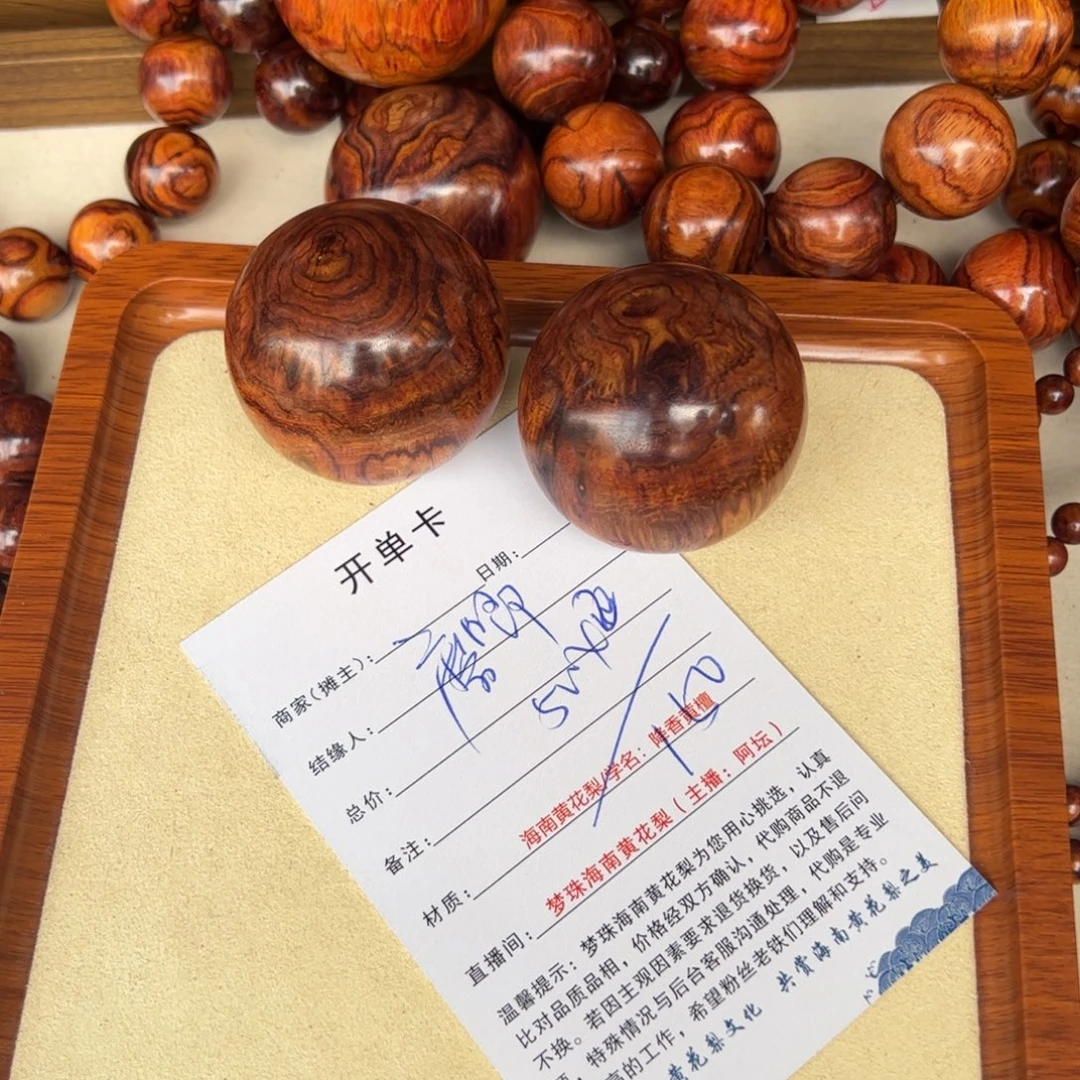 开单卡
日期:
商家(摊主):
结缘人:
总价:
备注:
材质: 海南黄花梨(学名: 降香黄檀
直播间: 梦珠海南黄花梨(主播: 阿坛)
温馨提示: 梦珠海南黄花梨为您用心挑选, 认真
比对品质品相, 价格经双方确认, 代购商品不退
不换。若因主观因素要求退货换货, 以及售后问
, 特殊情况与后台客服沟通处理, 代购是专业
高的工作, 希望粉丝老铁们理解和支持。
黄花梨文化 共赏海南黄花梨之美